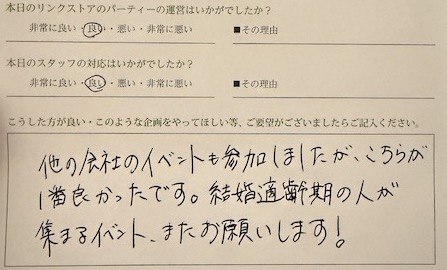 本日のリンクストアのパーティーの運営はいかがでしたか？
非常に良い・良い・悪い・非常に悪い ■その理由
本日のスタッフの対応はいかがでしたか？
非常に良い・良い・悪い・非常に悪い ■その理由
こうした方が良い・このような企画をやってほしい等、ご要望がございましたらご記入ください。
他の会社のイベントも参加しましたが、こちらが
1番良かったです。結婚適齢期の人が
集まるイベント、またお願いします！